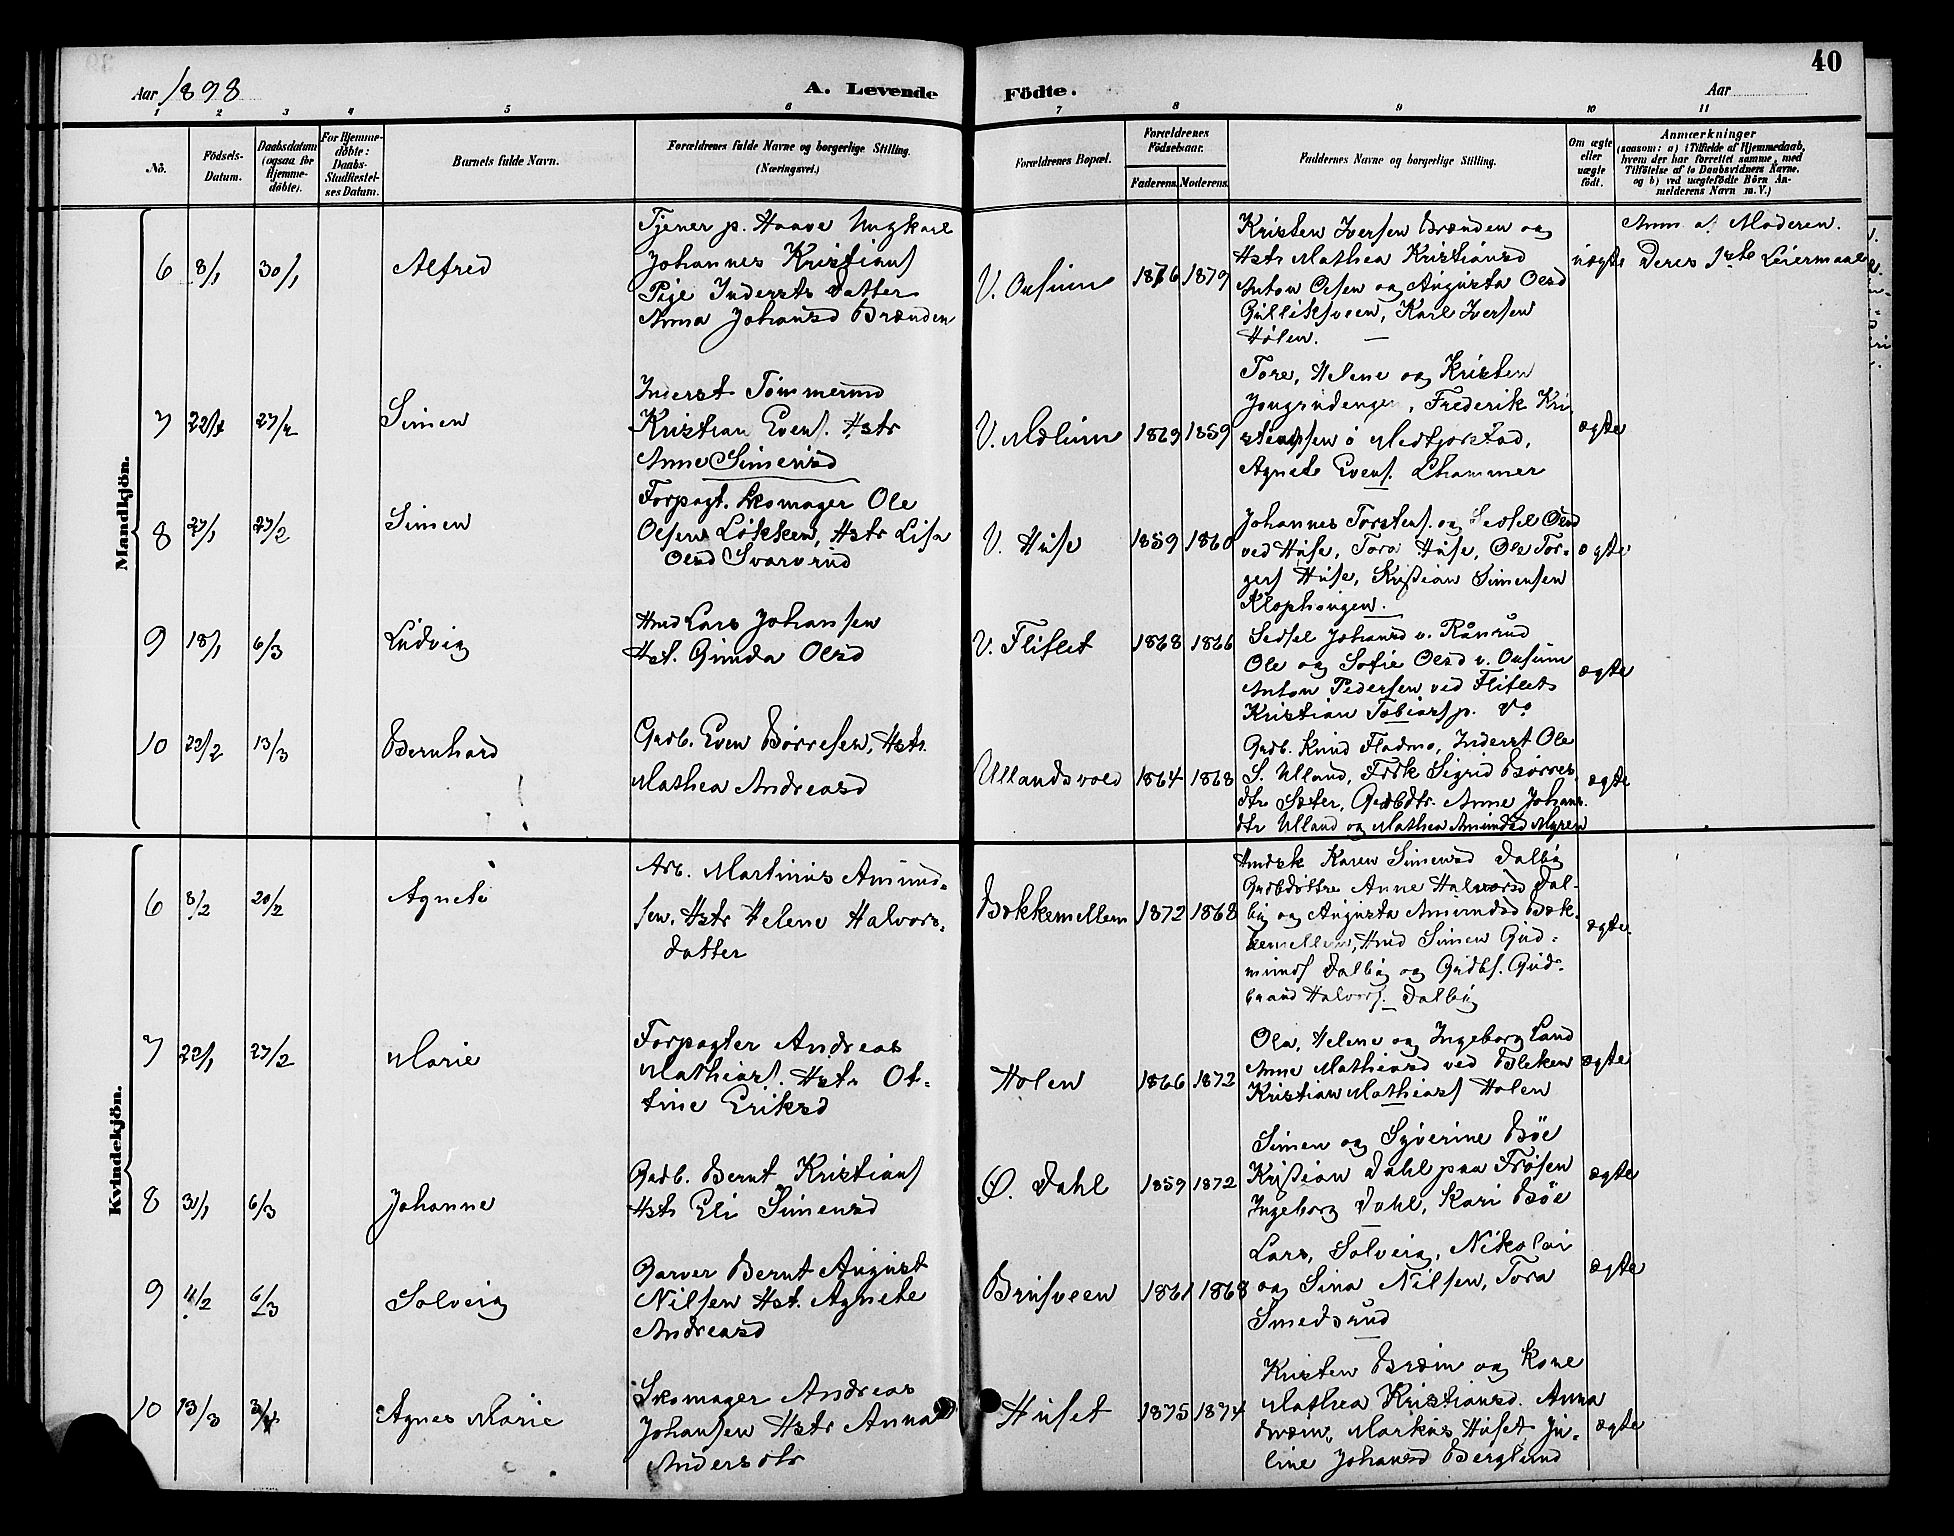 40
Aar 1898
A. Levende
Födte.
Aar
1 2 3 4 5 6 7 8 9 10 11
No.
Födsels-
Datum.
Daabsdatum
(ogsaa for
Hjemme-
döbte).
For Hjemme-
döbte:
Daabs-
Stadfæstel-
ses Datum.
Barnets fulde Navn.
Forældrenes fulde Navne og borgerlige Stilling.
(Næringsvei.)
Forældrenes Bopæl.
Forældrenes
Födselsaar.
Faderens. Moderens.
Faddernes Navne og borgerlige Stilling.
Om ægte
eller
uægte
födt.
Anmærkninger
(saasom: a) i Tilfælde af Hjemmedaab,
hvem der har forrettet samme, med
Tilföielse af to Daabsvidners Navne.
og b) ved uægtefödte Börn An-
melderens Navn m. V.)
Mandkjön.
6 8/1 30/1 Alfred
Tjener p. Haave Ungkarl
Johannes Kristians
Pige Inderstdatter
Anna Johansd Brænden
V. Ousum 1876 1879
Kristen Iversen Brænden og
Hstr Mathea Kristiansd
Anton Olsen og Augusta Olsd
Gulliksveen, Karl Iversen
Hölen.
uægte
Anm. af Moderen.
Deres 1ste Leiermaal
7 22/1 27/2 Simen
Inderst Tömmermd
Kristian Evens. Hstr
Anne Simensd
V. Mælum 1869 1859
Tore, Helene og Kristen
Frederik Kri
stiansen
Agnete Evens. Lhammer
ægte
8 27/1 27/2 Simen
Forpagt. Skomager Ole
Olsen Lökken, Hstr Lisa
Olsd Svarvrud
V. Huse 1859 1860
Johannes Torstens. og Sedsel Olsd
ved Huse, Tora Huse, Ole Tor-
gers Huse, Kristian Simensen
Klophougen.
ægte
9 18/1 6/3 Ludvig
Hmd Lars Johansen
Hst. Gunda Olsd
V. Fliflet 1868 1866
Sedsel Johansd v. Rånrud
Ole og Sofie Olsd v. Ousum
Anton Pedersen ved Fliflet
Kristian Tobiass p. do
ægte
10 22/2 13/3 Bernhard
Grdb. Even Börresen, Hstr.
Mathea Andreasd
Ullandsvold 1864 1868
Grdb. Knud Fladmo, Inderst Ole
S. Ulland, Frök Sigrid Börres-
dtr Sæter, Grdbdtr. Anne Johans-
dtr Ulland og Mathea Amundsd Myren
ægte
Kvindekjön.
6 8/2 20/2 Agnete
Arb. Martinus Amund-
sen. Hstr Helene Halvors-
datter
Bakkemellem 1872 1868
Hmdsk Karen Simensd Dalby
Grdbdöttre Anne Halvorsd Dal-
by og Augusta Amundsd Bak-
kemellem, Hmd Simen Gud-
munds Dalby og Grdbs. Gud-
brand Halvors. Dalby
ægte.
7 22/1 27/2 Marie
Forpagter Andreas
Mathiass. Hstr Ot-
tine Eriksd
Holen 1866 1872
Ola, Helene og Ingeborg Land
Anne Mathiasd ved Bleken
Kristian Mathiass Holen
ægte
8 31/1 6/3 Johanne
Grdb. Bernt Kristians
Hstr Eli Simensd
Ø. Dahl 1859 1872
Simen og Syverine Böe
Kristian Dahl paa Frösen
Ingeborg Dahl, Kari Böe
ægte
9 4/2 6/3 Solveig
Garver Bernt August
Nilsen Hst. Agnete
Andreasd
Brusveen 1861 1868
Lars, Solveig, Nikolai
og Sina Nilsen, Tora
Smedsrud
ægte
10 13/3 3/4 Agnes Marie
Skomager Andreas
Johansen Hstr Anna
Andersdtr
Huset 1875 1874
Kristen Bræin og kone
Mathea Kristiansd. Anna
Bræin, Markus Huset Ju-
line Johansd Berglund
ægte